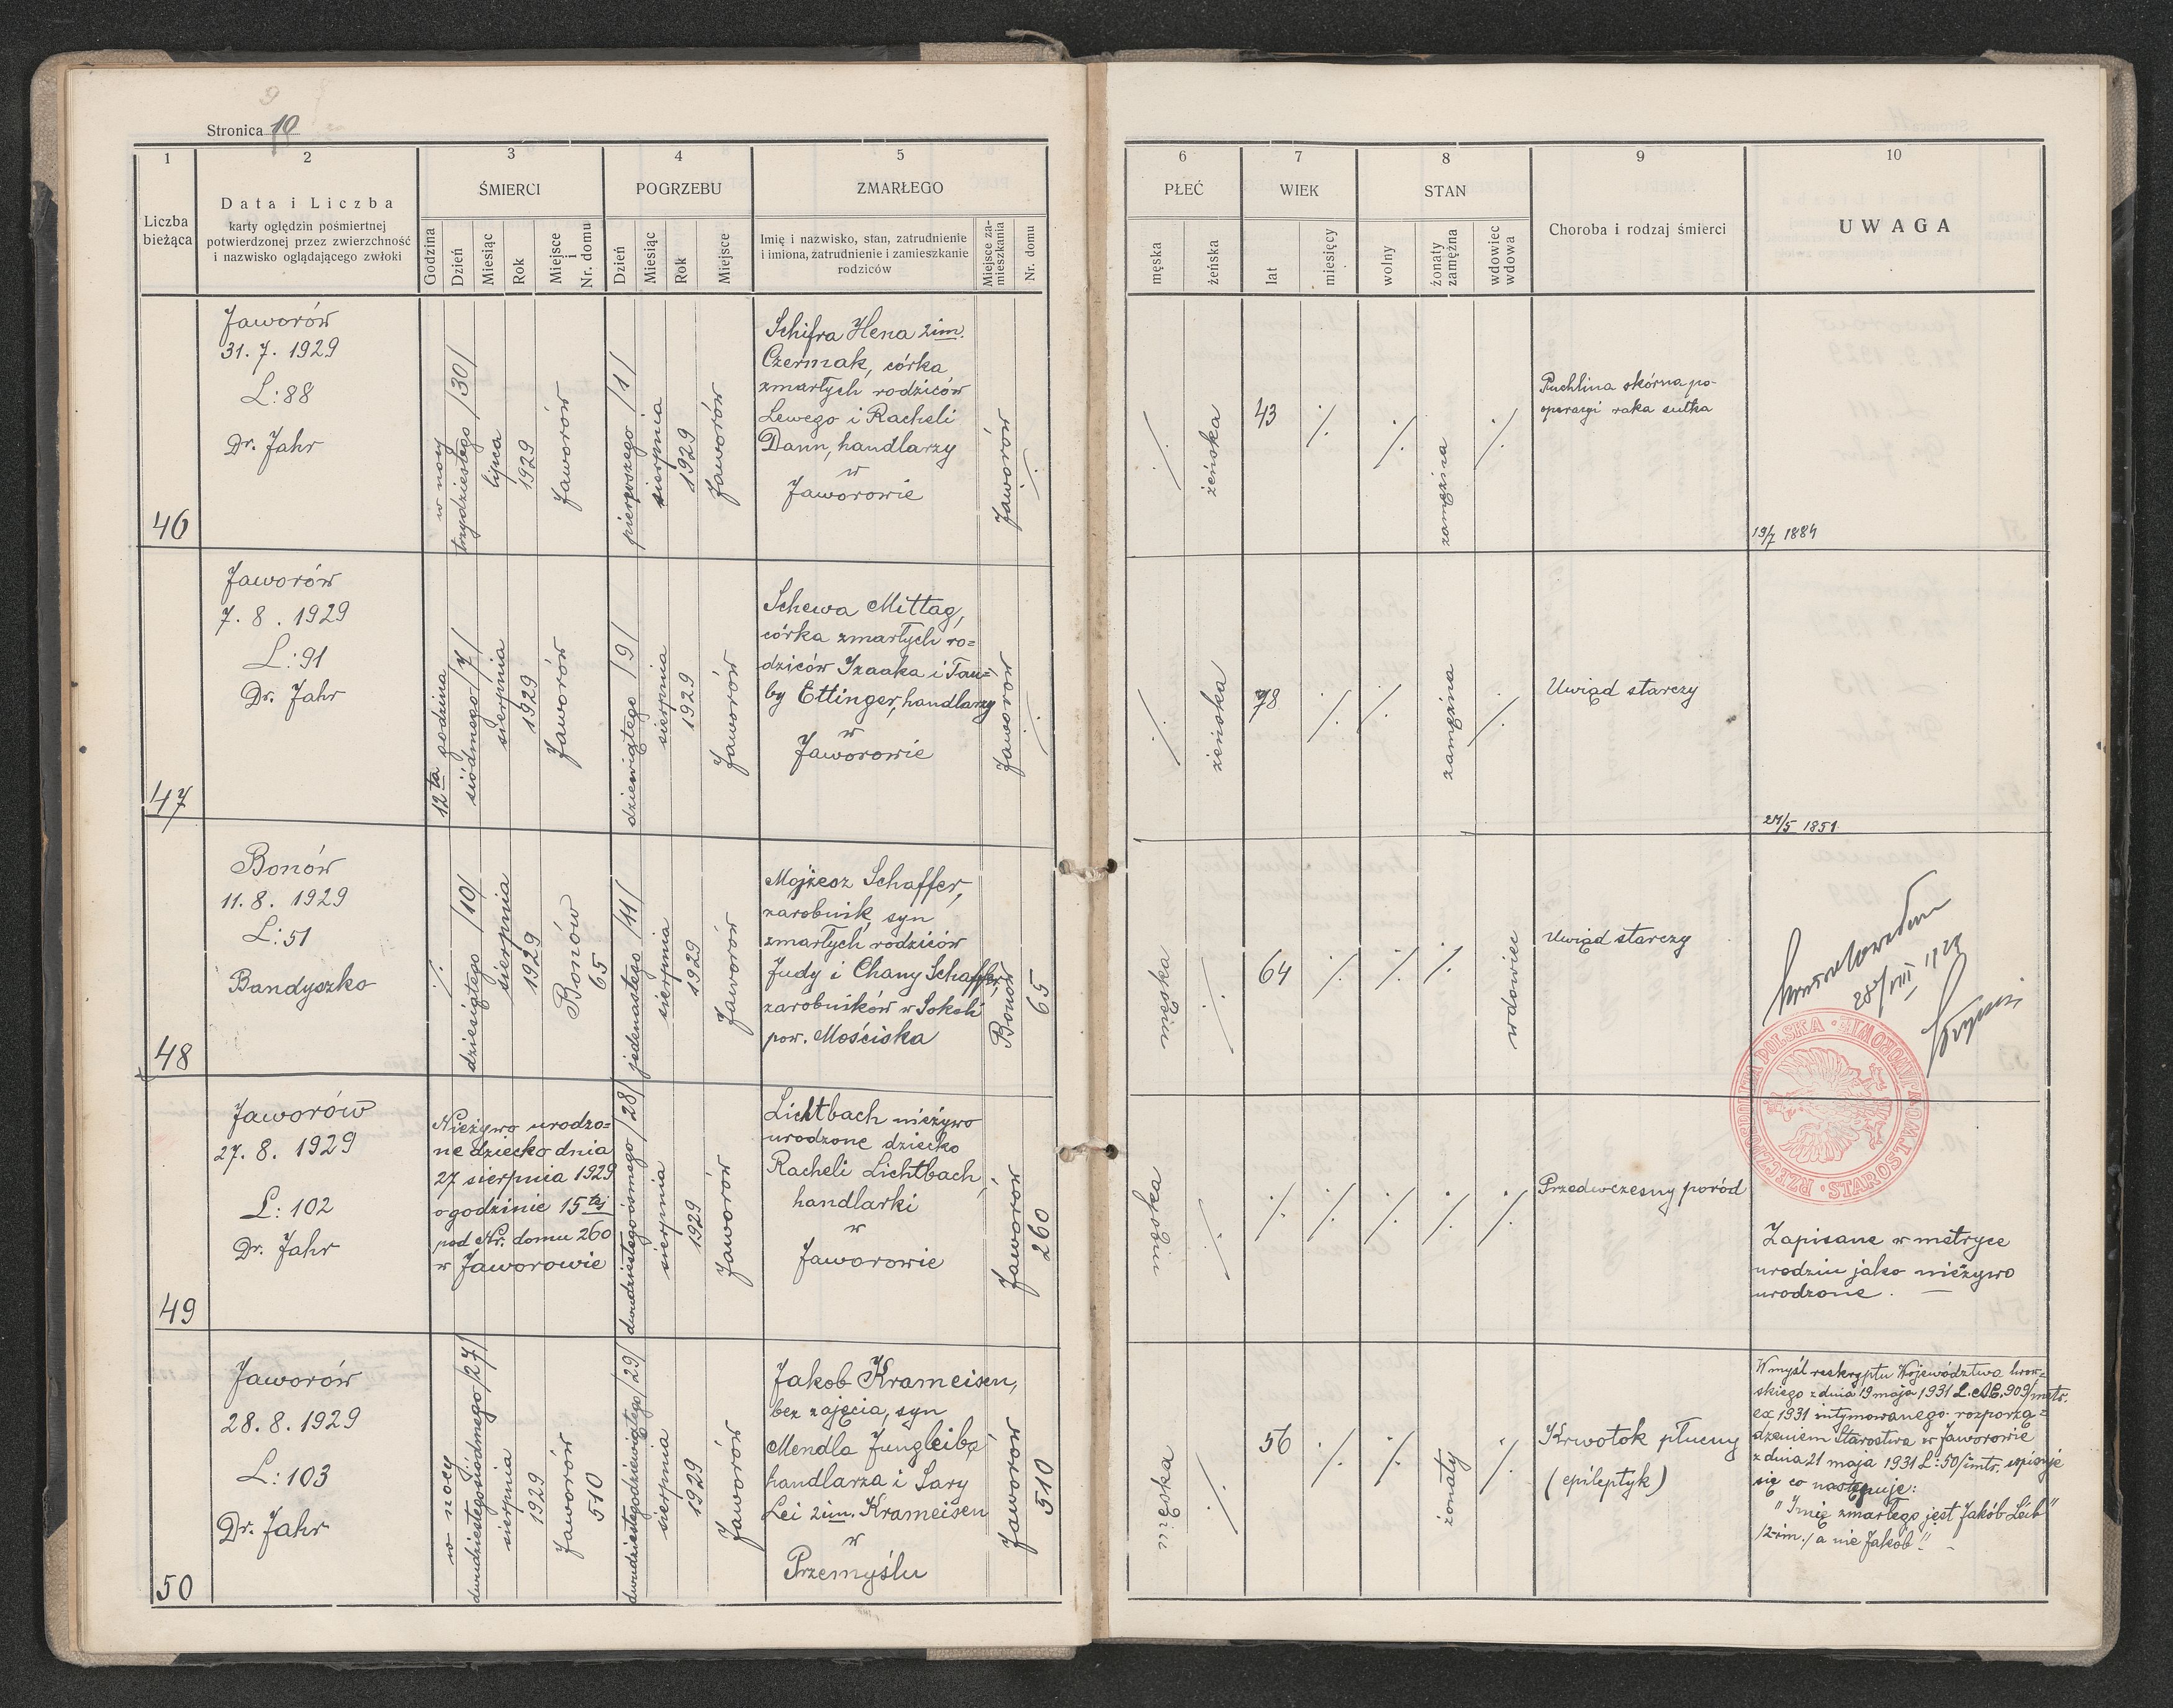 Stronica 10
1
2
3
4
5
Liczba
bieżąca
Data i Liczba
karty oględzin pośmiertnej
potwierdzonej przez zwierzchność
i nazwisko oglądającego zwłoki
ŚMIERCI
Godzina
Dzień
Miesiąc
Rok
Miejsce
i
Nr. domu
POGRZEBU
Dzień
Miesiąc
Rok
Miejsce
ZMARŁEGO
Imię i nazwisko, stan, zatrudnienie
i imiona, zatrudnienie i zamieszkanie
rodziców
Miejsce za-
mieszkania
Nr. domu
6
7
8
9
10
PŁEĆ
męska
żeńska
WIEK
lat
miesięcy
STAN
wolny
żonaty
zamężna
wdowiec
wdowa
Choroba i rodzaj śmierci
UWAGA
46
Jaworów
31. 7. 1929
L: 88
Dr. Jahr
w nocy
trzydziestego /30/
lipca
1929
Jaworów
pierwszego /1/
sierpnia
1929
Jaworów
Schifra Hena 2im.
Czermak, córka
zmarłych rodziców
Lewego i Racheli
Dann, handlarzy
w
Jaworowie
Jaworów
./.
./.
żeńska
43
./.
./.
zamężna
./.
Puchlina skórna po-
operacyi raka sutka
19/7 1884
47
Jaworów
7. 8. 1929
L: 91
Dr. Jahr
12ta godzina
siódmego /7/
sierpnia
1929
Jaworów
dziewiątego /9/
sierpnia
1929
Jaworów
Schewa Mittag,
córka zmarłych ro=
dziców Izaaka i Tau=
by Ettinger, handlarzy
w
Jaworowie
Jaworów
./.
./.
żeńska
78
./.
./.
zamężna
./.
Uwiąd starczy
1851
48
Bonów
11. 8. 1929
L: 51
Bandyszko
./.
dziesiątego /10/
sierpnia
1929
Bonów
65
jedenastego /11/
sierpnia
1929
Jaworów
Mojżesz Schaffer,
zarobnik, syn
zmarłych rodziców
Judy i Chany Schaffer,
zarobników w Sokoli
pow. Mościska
Bonów
65
męska
./.
64
./.
./.
./.
wdowiec
Uwiąd starczy
28/VIII 1929
RZECZPOSPOLITA POLSKA · STAROSTWO W JAWOROWIE ·
49
Jaworów
27. 8. 1929
L: 102
Dr. Jahr
Nieżywo urodzo=
ne dziecko dnia
27 sierpnia 1929
o godzinie 15tej
pod Nr. domu 260
w Jaworowie
dwudziestegoósmego /28/
sierpnia
1929
Jaworów
Lichtbach nieżywo
urodzone dziecko
Racheli Lichtbach,
handlarki
w
Jaworowie
Jaworów
260
męska
./.
./.
./.
./.
./.
./.
Przedwczesny poród
Zapisane w metryce
urodzin jako nieżywo
urodzone.
50
Jaworów
28. 8. 1929
L: 103
Dr. Jahr
w nocy
dwudziestegosiódmego /27/
sierpnia
1929
Jaworów
510
dwudziestegodziewiątego /29/
sierpnia
1929
Jaworów
Jakob Krameisen,
bez zajęcia, syn
Mendla Jungleiba
handlarza i Sary
Lei 2im. Krameisen
w
Przemyślu
Jaworów
510
męska
./.
56
./.
./.
żonaty
./.
Krwotok płucny
(epileptyk)
W myśl reskryptu Województwa lwow=
skiego z dnia 19 maja 1931 L. 909/metr.
ex 1931 intymowanego rozporzą=
dzeniem Starostwa w Jaworowie
z dnia 21 maja 1931 L: 50/metr. wpisuje
się co następuje:
"Imię zmarłego jest Jakób Leib"
/2-im./ a nie Jakób".